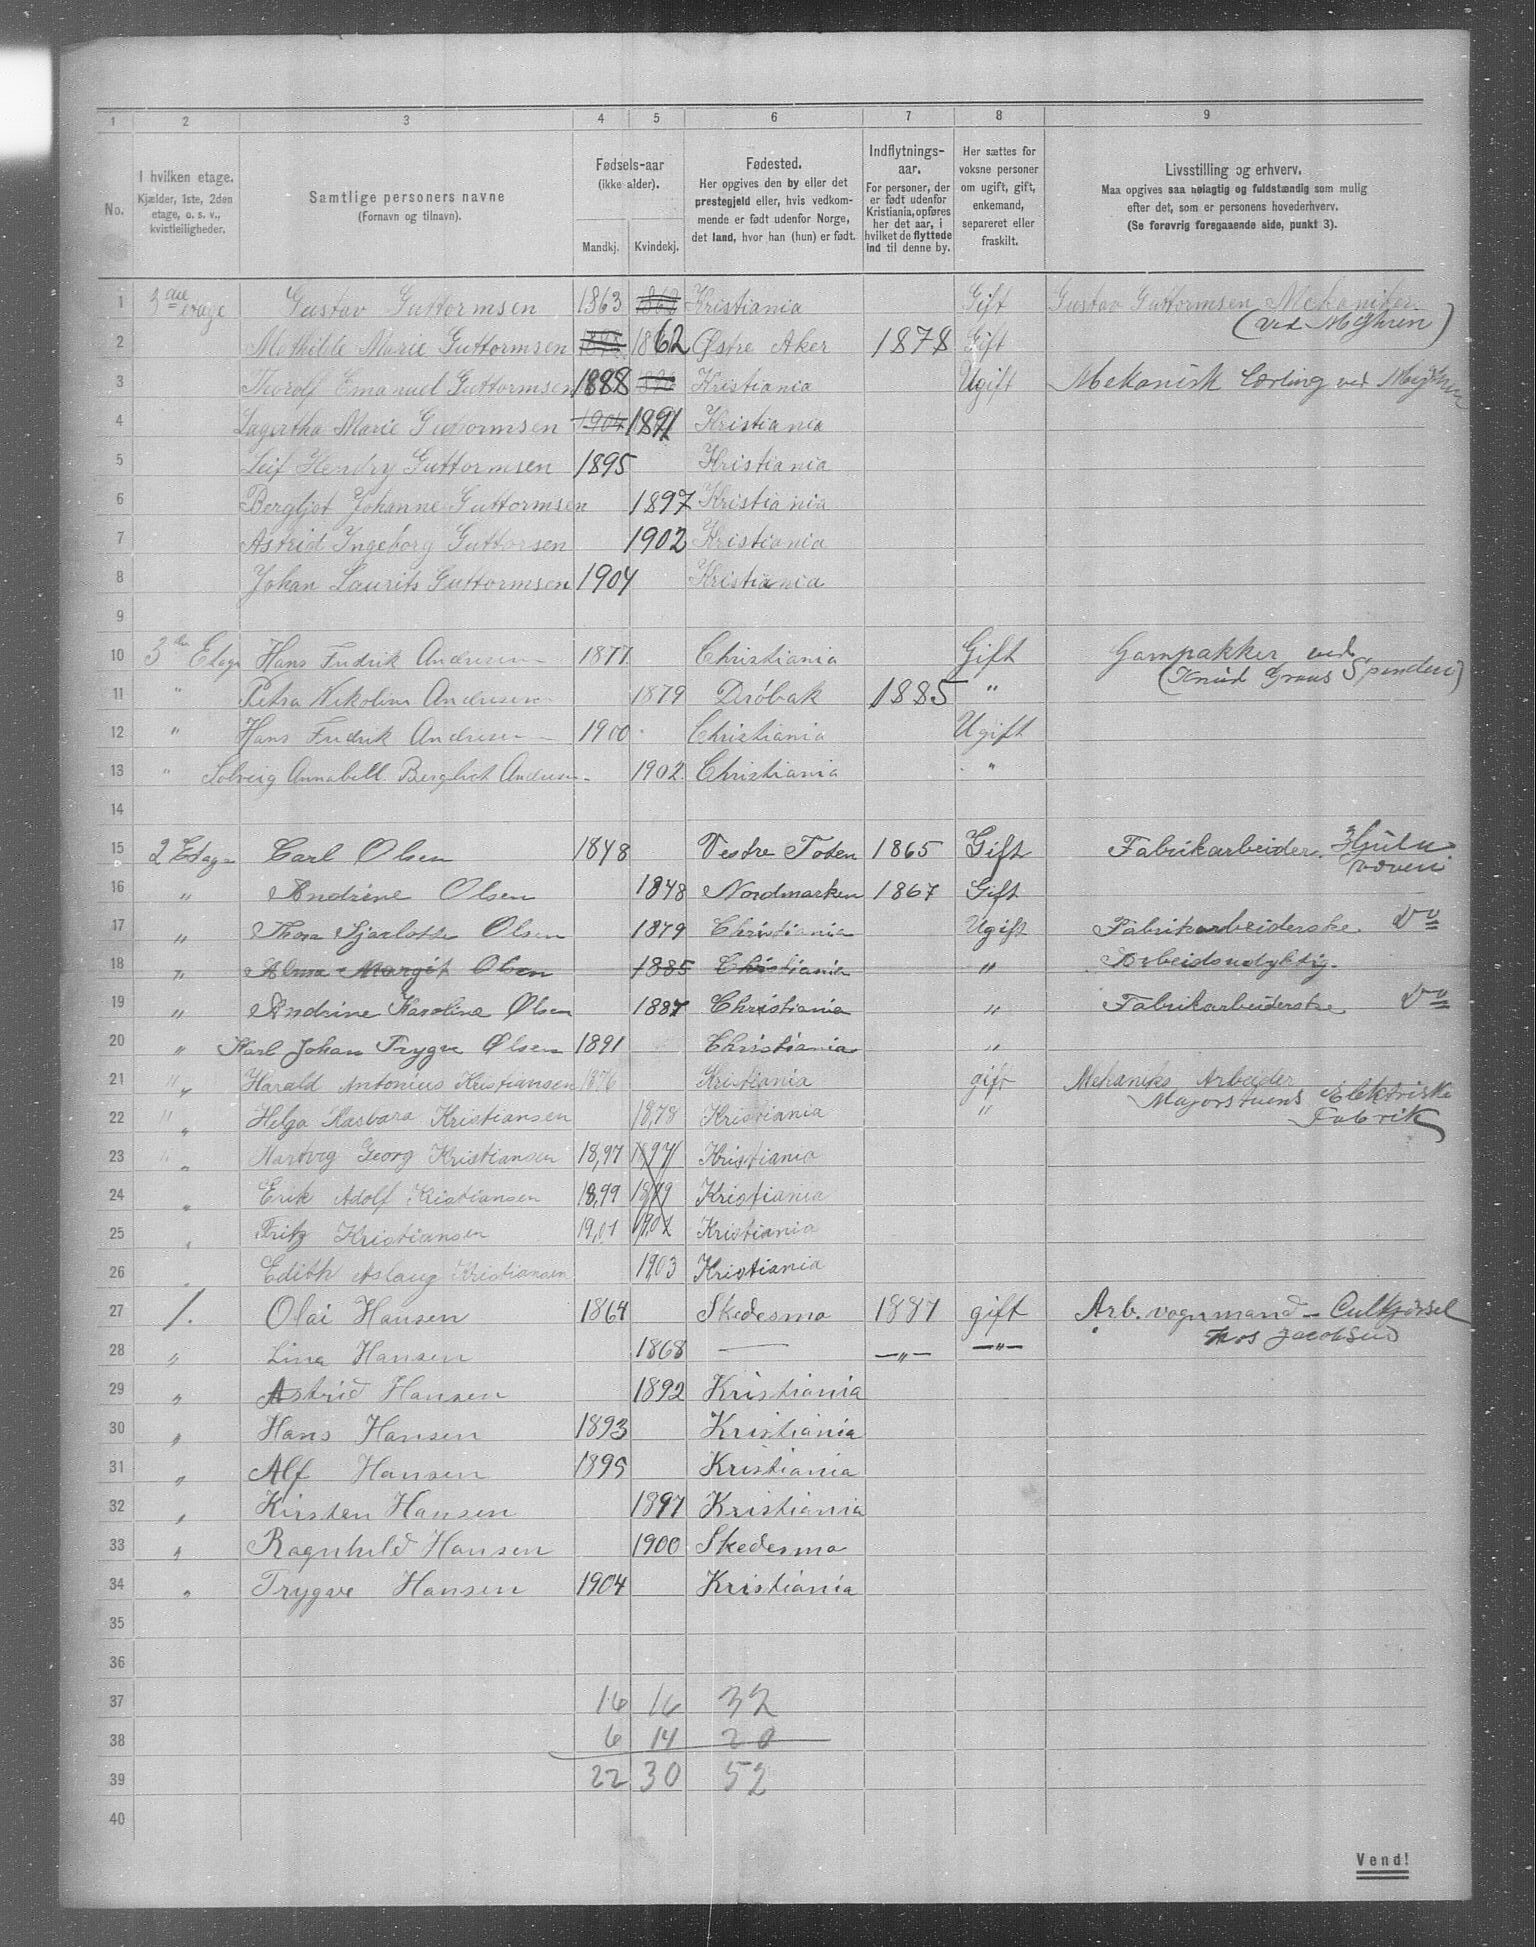 1 2 3 4 5 6 7 8 9
No.
I hvilken etage.
Kjælder, 1ste, 2den
etage, o. s. v.,
kvistleiligheder.
Samtlige personers navne
(Fornavn og tilnavn).
Fødsels-aar
(ikke alder).
Mandkj. Kvindekj.
Fødested.
Her opgives den by eller det
prestegjeld eller, hvis vedkom-
mende er født udenfor Norge,
det land, hvor han (hun) er født.
Indflytnings-
aar.
For personer, der
er født udenfor
Kristiania, opføres
her det aar, i
hvilket de flyttede
ind til denne by.
Her sættes for
voksne personer
om ugift, gift,
enkemand,
separeret eller
fraskilt.
Livsstilling og erhverv.
Maa opgives saa nøiagtig og fuldstændig som mulig
efter det, som er personens hovederhverv.
(Se forøvrig foregaaende side, punkt 3).
1 3die etage Gustav Guttormsen 1863 1863 Kristiania Gift Gustav Guttormsen Mekaniker
(ved Myhren)
2 Mathilde Marie Guttormsen 1862 Østre Aker 1878 Gift
3 Thorolf Emanuel Guttormsen 1888 Kristiania Ugift Mekanisk Lærling ved Myhren
4 Lagertha Marie Guttormsen 1904 1891 Kristiania
5 Leif Hendry Guttormsen 1895 Kristiania
6 Bergljot Johanne Guttormsen 1897 Kristiania
7 Astrid Ingeborg Guttorsen 1902 Kristiania
8 Johan Laurits Guttormsen 1904 Kristiania
9
10 3de Etage Hans Fredrik Andresen 1877 Christiania Gift Garnpakker ved
(Knud Graus Spinderi)
11 " Petra Nikoline Andresen 1879 Drøbak 1885 "
12 " Hans Fredrik Andresen 1900 Christiania Ugift
13 " Solveig Annabell Bergliot Andresen 1902 Christiania "
14
15 2 Etage Carl Olsen 1848 Vestre Toten 1865 Gift Fabrikarbeider. Hjula
væveri
16 " Andrine Olsen 1848 Nordmarken 1867 Gift
17 " Thora Sjarlotte Olsen 1879 Christiania Ugift Fabrikarbeiderske Do
18 " Alma Margit Olsen 1885 Christiania " Arbeidsudygtig.
19 " Andrine Karoline Olsen 1887 Christiania " Fabrikarbeiderske Do
20 " Karl Johan Trygve Olsen 1891 Christiania "
21 " Harald Antonius Kristiansen 1876 Kristiania gift Mekaniks Arbeider
Majorstuens Elektriske
Fabrik
22 " Helga Barbara Kristiansen 1878 Kristiania "
23 " Hartvig Georg Kristiansen 1897 1897 Kristiania
24 " Erik Adolf Kristiansen 1899 1899 Kristiania
25 " Fritz Kristiansen 1901 1902 Kristiania
26 " Edith Aslaug Kristiansen 1903 Kristiania
27 1. Olai Hansen 1864 Skedesmo 1887 gift Arb. vognmand - Culkjørsel
hos Jacobsen
28 " Lina Hansen 1868 — —"— —"—
29 " Astrid Hansen 1892 Kristiania
30 " Hans Hansen 1893 Kristiania
31 " Alf Hansen 1895 Kristiania
32 " Kirsten Hansen 1897 Kristiania
33 " Ragnhild Hansen 1900 Skedesmo
34 " Trygve Hansen 1904 Kristiania
35
36
37 16 16 32
38 6 14 20
39 22 30 52
40
Vend!